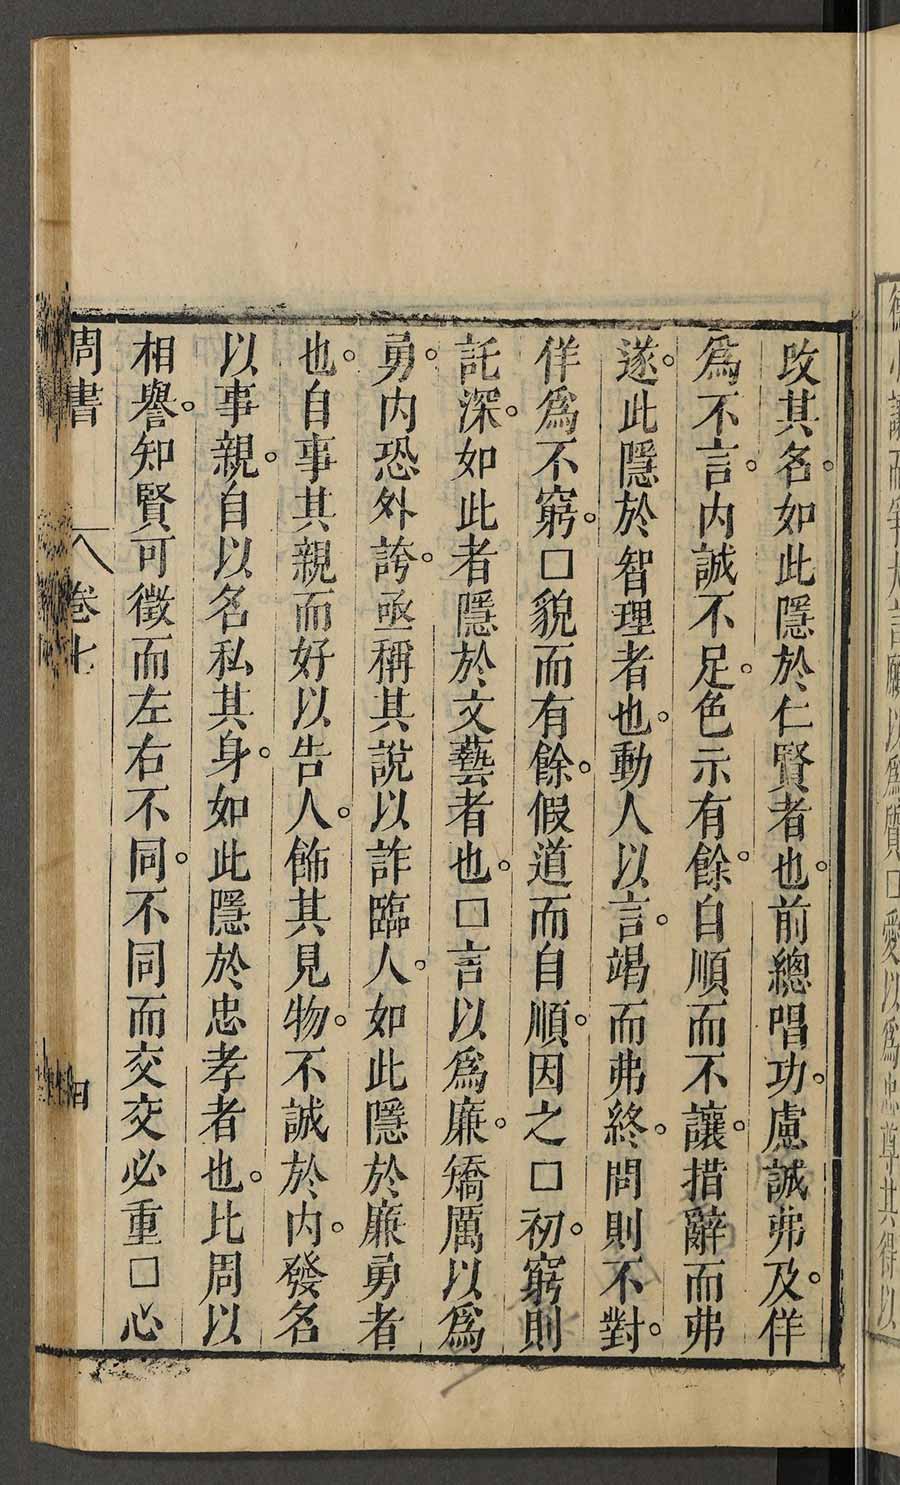 攻其名。如此隱於仁賢者也。前總唱功。慮誠弗及。佯
爲不言。内誠不足。色示有餘。自順而不讓。措辭而弗
遂。此隱於智理者也。動人以言。竭而弗終。問則不對。
佯爲不窮。□貌而有餘。假道而自順。因之□初。窮則
託深。如此者隱於文藝者也。□言以爲廉。矯厲以爲
勇。内恐外誇。亟稱其說以詐臨人。如此隱於廉勇者
也。自事其親而好以告人。飾其見物。不誠於内。發名
以事親。自以名私其身。如此隱於忠孝者也。比周以
相譽。知賢可徵而左右不同。不同而交交必重□心
周書
卷七